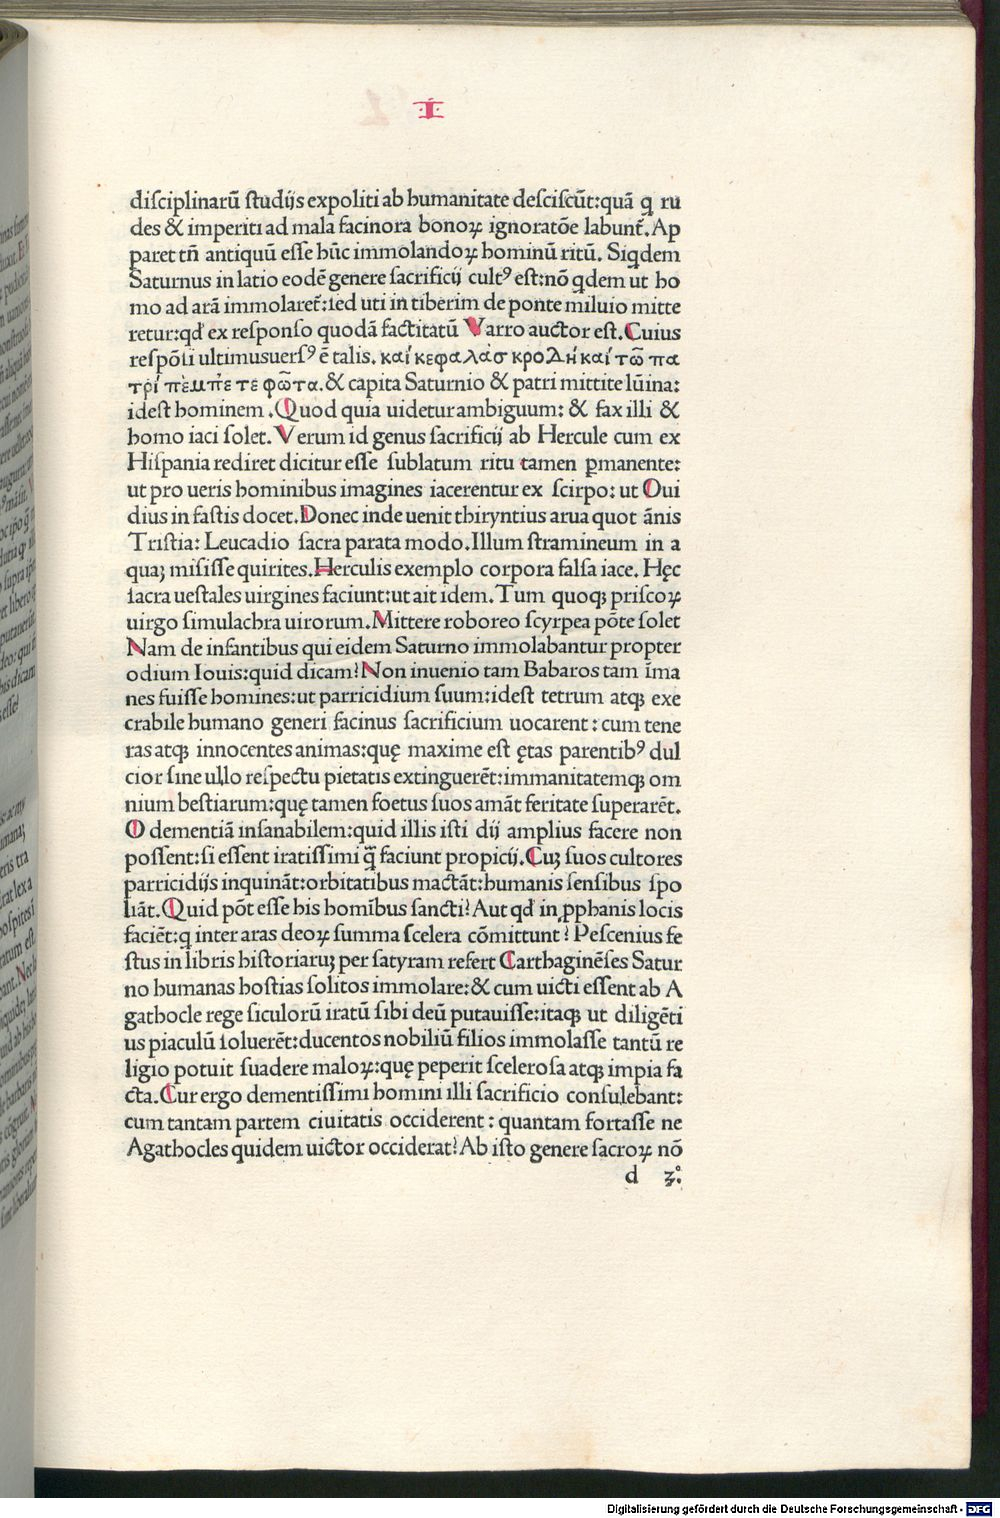 I
disciplinarū ſtudijs expoliti ab humanitate deſciſcūt:quā q̄ ru
des & imperiti ad mala facinora bonoꝝ ignoratōe labunt᷑. Ap
paret tn̄ antiquū eſſe hūc immolandoꝝ hominū ritū. Siqdem
Saturnus in latio eodē genere ſacrificij cultꝰ eſt:nō qdem ut ho
mo ad arā immolaret᷑:ſed uti in tiberim de ponte miluio mitte
retur:qd̄ ex reſponſo quodā factitatū Varro auctor eſt. Cuius
reſpōſi ultimusuerſꝰ ē talis. καί κεφαλάσ κροΔή καί τω̃ πα
τρί πὲμπ̓ε τε φω̃τα. & capita Saturnio & patri mittite lūina:
ideſt hominem . Quod quia uidetur ambiguum: & fax illi &
homo iaci ſolet. Verum id genus ſacrificij ab Hercule cum ex
Hiſpania rediret dicitur eſſe ſublatum ritu tamen ꝑmanente:
ut pro ueris hominibus imagines iacerentur ex ſcirpo: ut Oui
dius in faſtis docet. Donec inde uenit thiryntius arua quot ānis
Triſtia: Leucadio ſacra parata modo. Illum ſtramineum in a
quaꝫ miſiſſe quirites. Herculis exemplo corpora falſa iace. Hęc
ſacra ueſtales uirgines faciunt:ut ait idem. Tum quoqꝫ priſcoꝝ
uirgo ſimulachra uirorum. Mittere roboreo ſcyrpea pōte ſolet
Nam de infantibus qui eidem Saturno immolabantur propter
odium Iouis:quid dicam? Non inuenio tam Babaros tam īma
nes fuiſſe homines:ut parricidium ſuum:ideſt tetrum atqꝫ exe
crabile humano generi facinus ſacrificium uocarent : cum tene
ras atqꝫ innocentes animas:quę maxime eſt ętas parentibꝰ dul
cior ſine ullo reſpectu pietatis extinguerēt:immanitatemqꝫ om
nium beſtiarum:quę tamen foetus ſuos amāt feritate ſuperarēt.
O dementiā inſanabilem:quid illis iſti dij amplius facere non
poſſent:ſi eſſent iratiſſimi q̄ faciunt propicij. Cuꝫ ſuos cultores
parricidijs inquināt:orbitatibus mactāt:humanis ſenſibus ſpo
liāt. Quid pōt eſſe his homībus ſancti? Aut qd̄ in ꝓphanis locis
faciēt:q̄ inter aras deoꝝ ſumma ſcelera cōmittunt? Peſcenius fe
ſtus in libris hiſtoriaruꝫ per ſatyram refert Carthaginēſes Satur
no humanas hoſtias ſolitos immolare:& cum uicti eſſent ab A
gathocle rege ſiculorū iratū ſibi deū putauiſſe:itaqꝫ ut diligēti
us piaculū ſoluerēt:ducentos nobiliū filios immolaſſe tantū re
ligio potuit ſuadere maloꝝ:quę peperit ſceleroſa atqꝫ impia fa
cta. Cur ergo dementiſſimi homini illi ſacrificio conſulebant:
cum tantam partem ciuitatis occiderent : quantam fortaſſe ne
Agathocles quidem uictor occiderat? Ab iſto genere ſacroꝝ nō
d
Digitalisierung gefördert durch die Deutsche Forschungsgemeinschaft - DFG